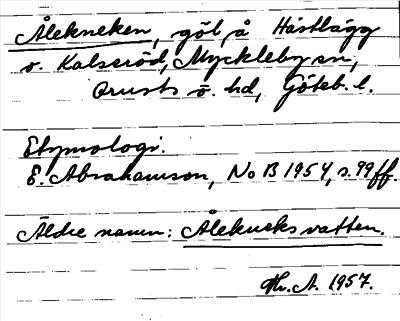 Ålekneken, göl, å Hästlägg
v. Kalseröd, Myckleby sn,
Orusts v. hd, Göteb. l.
Etymologi.
E. Abrahamson, NoB 1954, s. 99 ff.
Äldre namn: Ålekneksvatten.
Hr. A. 1957.